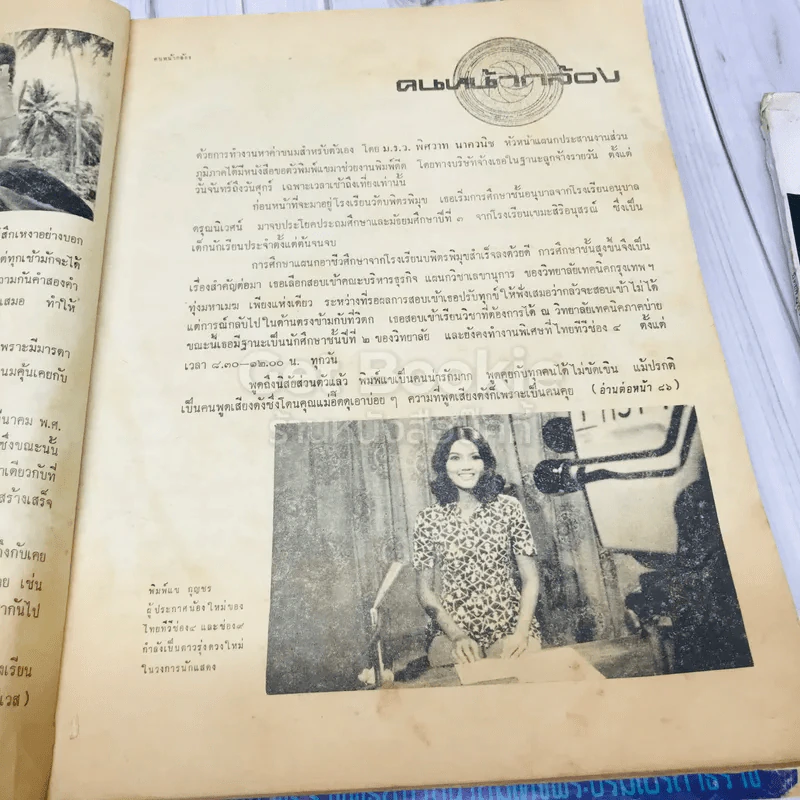 คนหน้ากล้อง
คนหน้ากล้อง
ด้วยการทำงานหาค่าขนมสำหรับตัวเอง โดย ม.ร.ว. พิศวาท นาควนิช หัวหน้าแผนกประสานงานส่วน
ภูมิภาคได้มีหนังสือขอตัวพิมพ์แขมาช่วยงานพิมพ์ดีด โดยทางบริษัทจ้างเธอในฐานะลูกจ้างรายวัน ตั้งแต่
วันจันทร์ถึงวันศุกร์ เฉพาะเวลาเช้าถึงเที่ยงเท่านั้น
ก่อนหน้าที่จะมาอยู่โรงเรียนวัดบพิตรพิมุข เธอเริ่มการศึกษาชั้นอนุบาลจากโรงเรียนอนุบาล
ดรุณนิเวศน์ มาจบประโยคประถมศึกษาและมัธยมศึกษาปีที่ ๓ จากโรงเรียนเขมะสิริอนุสรณ์ ซึ่งเป็น
เด็กนักเรียนประจำตั้งแต่ต้นจนจบ
การศึกษาแผนกอาชีวศึกษาจากโรงเรียนบพิตรพิมุขสำเร็จลงด้วยดี การศึกษาชั้นสูงขึ้นจึงเป็น
เรื่องสำคัญต่อมา เธอเลือกสอบเข้าคณะบริหารธุรกิจ แผนกวิชาเลขานุการ ของวิทยาลัยเทคนิคกรุงเทพฯ
ทุ่งมหาเมฆ เพียงแห่งเดียว ระหว่างที่รอผลการสอบเข้าเธอปรับทุกข์ให้ฟังเสมอว่ากลัวจะสอบเข้าไม่ได้
แต่การณ์กลับไปในด้านตรงข้ามกับที่วิตก เธอสอบเข้าเรียนวิชาที่ต้องการได้ ณ วิทยาลัยเทคนิคภาคบ่าย
ขณะนี้เธอมีฐานะเป็นนักศึกษาชั้นปีที่ ๒ ของวิทยาลัย และยังคงทำงานพิเศษที่ไทยทีวีช่อง ๔ ตั้งแต่
เวลา ๘.๓๐—๑๒.๐๐ น. ทุกวัน
พูดถึงนิสัยส่วนตัวแล้ว พิมพ์แขเป็นคนน่ารักมาก พูดคุยกับทุกคนได้ไม่ขัดเขิน แม้ปรกติ
เป็นคนพูดเสียงดังซึ่งโดนคุณแม่อี๊ดดุเอาบ่อย ๆ ความที่พูดเสียงดังก็เพราะเป็นคนคุย (อ่านต่อหน้า ๘๖)
พิมพ์แข กุญชร
ผู้ประกาศน้องใหม่ของ
ไทยทีวีช่อง๔ และช่อง๙
กำลังเป็นดาวรุ่งดวงใหม่
ในวงการนักแสดง
สึกเหงาอย่างบอก
ต่ทุกเช้ามักจะได้
วามกันคำสองคำ
เสมอ ทำให้
พราะมีมารดา
นมคุ้นเคยกับ
นาคม พ.ศ.
ซึ่งขณะนั้น
าเดียวกับที่
สร้างเสร็จ
ถึงกับเคย
ย เช่น
ากันไป
งเรียน
เวส)